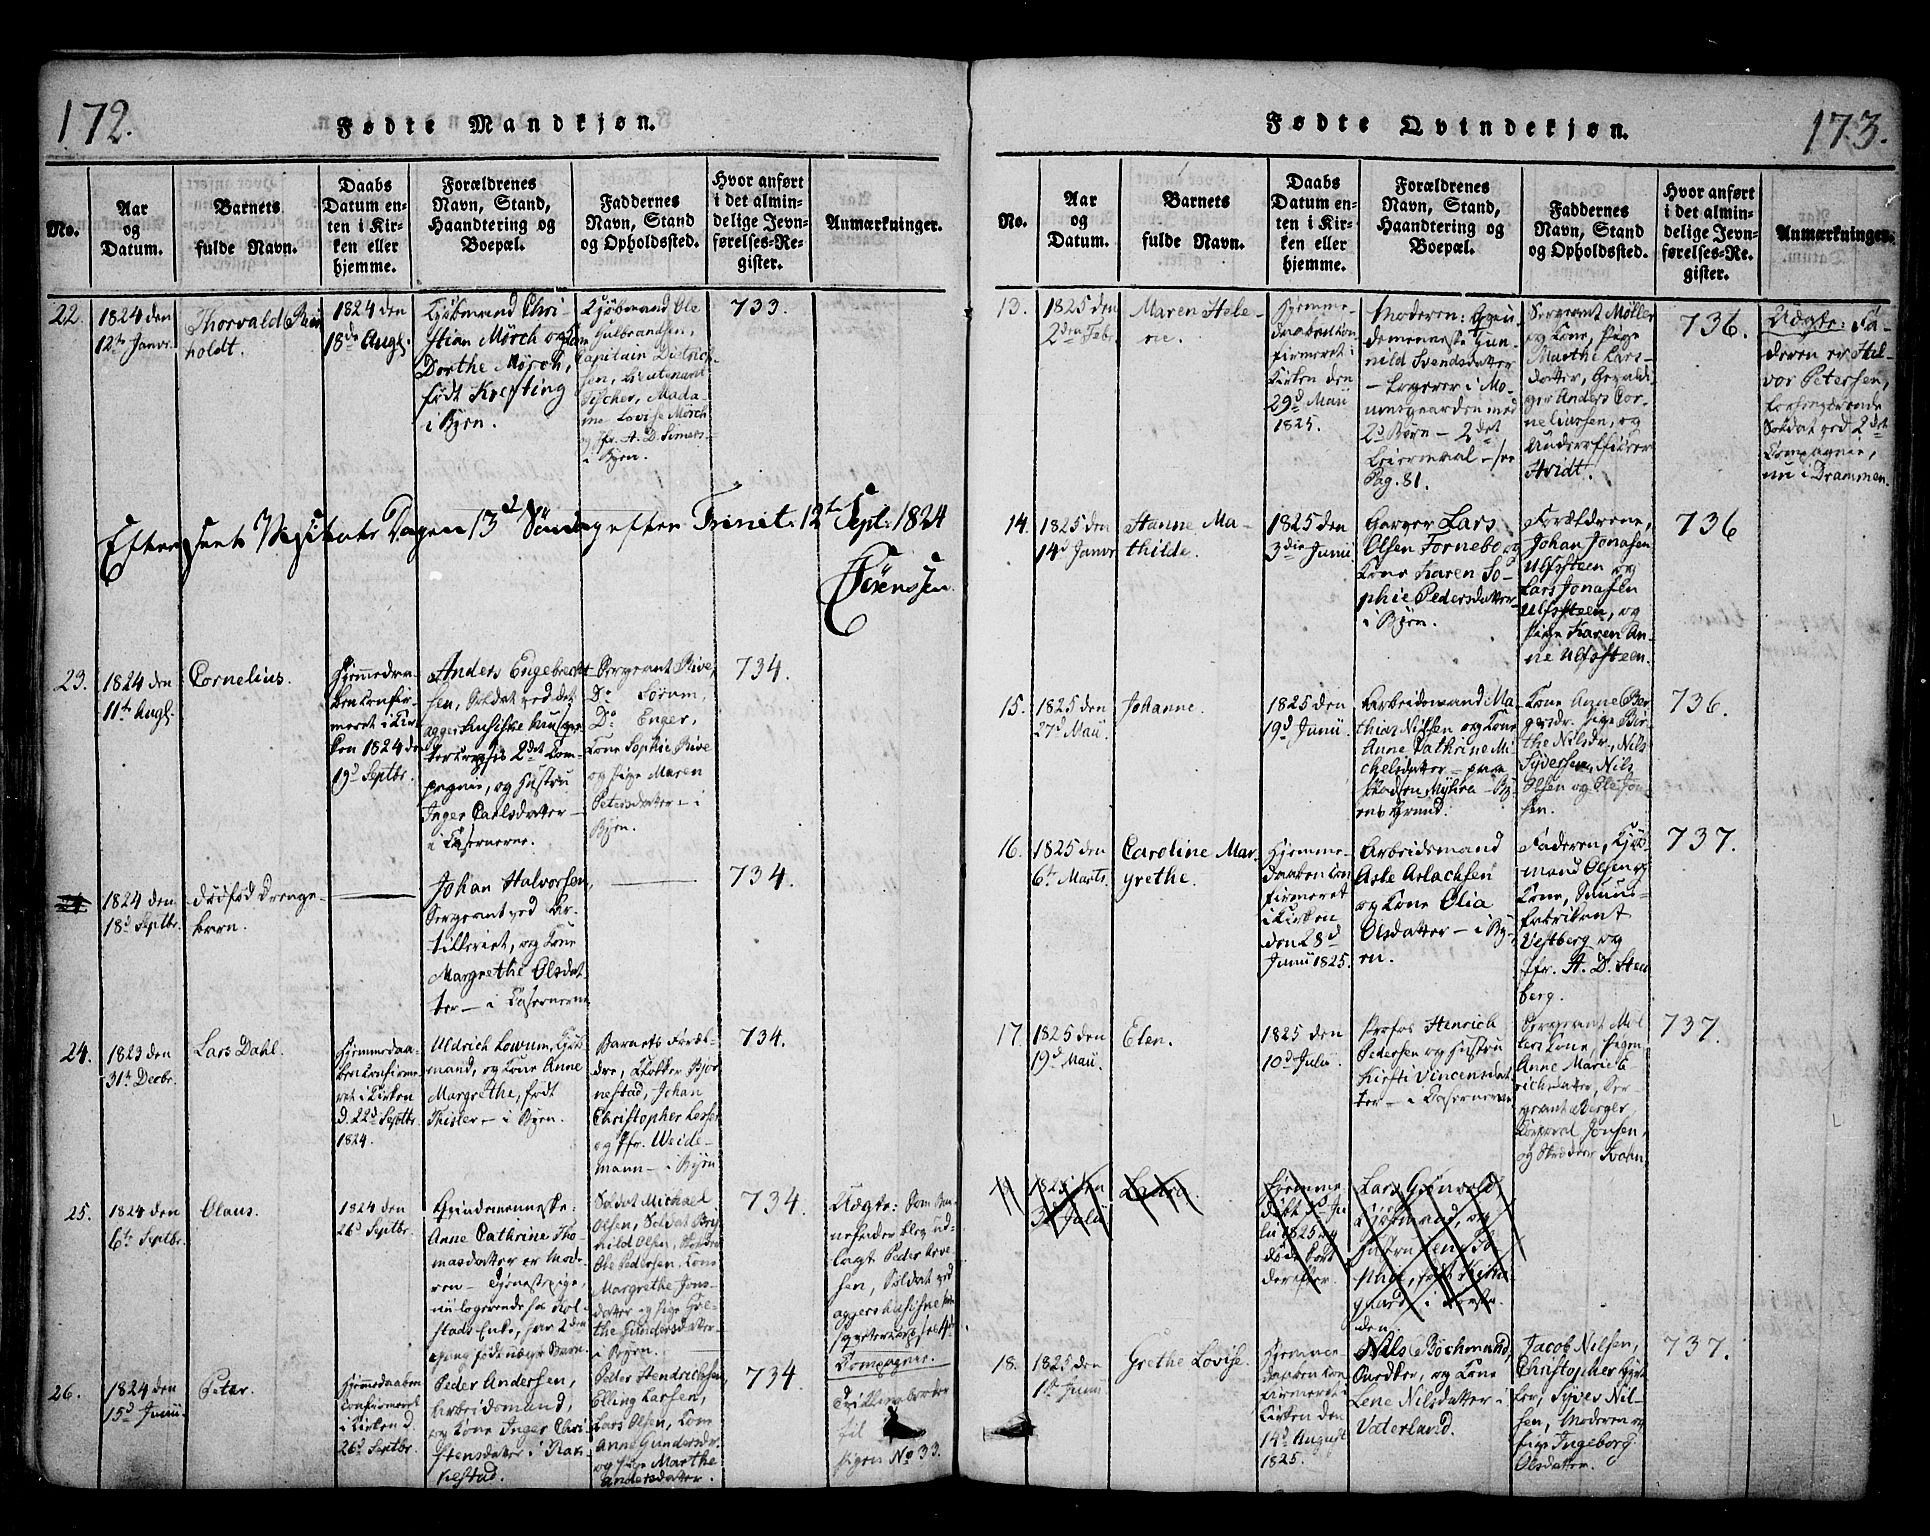 172.
Fødte Mandkjøn.
No.
Aar
og
Datum.
Barnets
fulde Navn.
Daabs
Datum en-
ten i Kir-
ken eller
hjemme.
Forældrenes
Navn, Stand,
Haandtering og
Boepæl.
Faddernes
Navn, Stand
og Opholdssted.
Hvor anført
i det almin-
delige Jevn-
førelses-Re-
gister.
Anmærkninger.
22.
1824 den
12te Janvr.
Thorvald
holdt.
1824 den
18de Augl.
Kjøbmand Chri-
stian Mørch og
Dorthe Mørch,
født Krefting
i Byen.
Kjøbmand Ole
Julbrandsen,
Capitain Dietrich-
sen, Lieutenant
Fischer, Mada-
me Lovise Mørch
og Jfr. A. D. Simers-
i Byen.
733.
Efterseet Visitats Dagen 13d Søndag efter Trinit: 12te Sept: 1824
Sörenssen.
23.
1824 den
11te Augl.
Cornelius.
Hjemmedøa-
ben confir-
meret i Kir-
ken 1824 den
19d Septbr.
Anders Engebrecht-
sen, Soldat ved det
aggershusiske
2det Com-
pagnie, og Hustru
Inger Carlsdatter -
i Casernerne.
Sergeant Rive,
Do Sörum,
Do Enger,
Kone Sophie Rive
og Pige Maren
Petersdatter - i
Byen.
734.
1824 den
18d Septbr.
dødfød Drenge-
barn.
Johan Halvorsen,
Sergeant ved Ar-
tilleriet, og Kone
Margrethe Olsdat-
ter - i Casernerne
734.
24.
1823 den
31te Decbr.
Lars Dahl.
Hjemmedaa-
ben confirme-
ret i Kirken
d. 22d Septbr.
1824.
Uldrich Lowum, Kjøb-
mand, og Kone Anne
Margrethe, født
Thisler - i Byen.
Barnets Foræl-
dre, Klokker Bjør-
nestad, Johan
Christopher
og Jfr. Weide-
mann - i Byen
734.
25.
1824 den
6te Septbr.
Olaus.
1824 den
26d Septbr.
Qvindemenneske:
Anne Cathrine Tho-
masdatter er Mode-
ren - Tjenestepige,
nu logerende hos Kol-
stads Enke, har 2den
Gang født uægte Barn.
Soldat Michael
Olsen, Soldat
Olsen,
Ole Pedersen, Kone
Margrethe Jons-
datter og Pige Gre-
the Gundersdatter -
i Byen.
734.
Uægte: Som Bar-
nefader blev ud-
lagt Peder Arve-
sen, Soldat ved
aggershusiske
4de
Compagnie.
26.
1824 den
15d Junii.
Peter.
Hjemmedaaben
confirmeret
i Kirken d.
26d Septbr.
Peder Andersen,
Arbeidsmand,
og Kone Inger Chri-
stensdatter i
Peder Hendrichsen,
Elling Larsen,
Lars Olsen, Kone
Anne Gundersdr.
og Pige Marthe
Andersdatter.
734.
Tvillingbroder
til
Pigen No 33.
173.
Fødte Qvindekjøn.
No.
Aar
og
Datum.
Barnets
fulde Navn.
Daabs
Datum en-
ten i Kir-
ken eller
hjemme.
Forældrenes
Navn, Stand,
Haandtering og
Boepæl.
Faddernes
Navn, Stand
og Opholdssted.
Hvor anført
i det almin-
delige Jevn-
førelses-Re-
gister.
Anmærkninger.
13.
1825 den
2den Febr.
Maren Hele-
ne.
Hjemme-
daaben con-
firmeret i
Kirken den
29d Maii
1825.
Moderen: Qvin-
demenneske Gun-
nild Svendsdatter
- Logerer i Mo-
med
2d Børn - 2det
Leiermaal - see
Pag. 81.
Sergeant Møller
og Kone, Pige
Marthe Lars-
datter,
Anders Cor-
neliussen, og
Underofficeer
Hvidt.
736.
Uægte: Fa-
deren er Hal-
vor Petersen,
Soldat ved 2det
Compagnie,
nu i Drammen.
14.
1825 den
14d Janvr
Hanne Ma-
thilde.
1825 den
3die Junii
Garver Lars
Olsen Fornebo og
Kone Karen So-
phie Pedersdatter -
i Byen.
Forældrene,
Johan Jonasen
Ulfssteen og
Lars Jonasen
Ulfssteen, og
Pige Karen An-
ne Ulfssteen.
736
15.
1825 den
27d Maii.
Johanne.
1825 den
19d Junii.
Arbeidsmand Ma-
thias Nilsen og Kone
Anne Cathrine Mi-
chelsdatter - paa
Pladsen Myhra - By-
ens Grund.
Kone Anne Bor-
gersdr. Pige Bør-
the Nilsdr. Nils
Syversen, Nils
Olsen og Ole Jon-
sen.
736.
16.
1825 den
6te Marts.
Caroline Mar-
grethe.
Hjemme-
daaben con-
firmeret
i Kirken
den 28d
Junii 1825.
Arbeidsmand
Asle Aslachsen
og Kone Olia
Olsdatter - i By-
en.
Faderen, Kjøb-
mand Olsen og
Kone, Snuus-
fabrikant
Vestberg og
Jfr. A. D. Sten-
berg.
737.
17.
1825 den
19d Maii.
Elen.
1825 den
10d Julii.
Profos Henrich
Pedersen og Hustru
Kirsti Vincensdat-
ter - i Casernerne
Sergeant Møl-
lers Kone, Pigen
Anne Marie E-
richsdatter, Ser-
geant Berger,
Corporal Jonsen,
og Skrædder
737.
1825 den
3d Julii
Laura.
Hjemme-
døbt
1825 og
døde kort
derefter.
Lars Grönvold,
Kjøbmand, og
Hustru
født
gaard
18.
1825 den
1te Junii
Grethe Lovise.
Hjemme-
daaben con-
firmeret i
Kirken den
14d August
1825.
Nils Bochmand,
Snedker, og Kone
Lene Nilsdatter i
Vaterland.
Jacob Nilsen,
Christopher
Syver Nil-
sen, Moderen og
Pige Ingeborg
Olsdatter.
737.